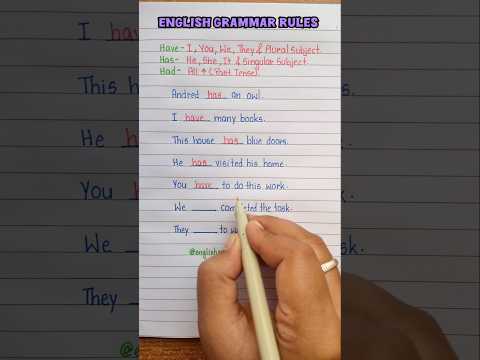 ENGLISH GRAMMAR RULES
Have- I, You, We, They & Plural Subject.
Has- He, She, It & Singular Subject.
Had- All ↑ (Past Tense).
Andred has an owl.
I have many books.
This house has blue doors.
He has visited his home.
You have to do this work.
We ____ completed the task.
They ____ to